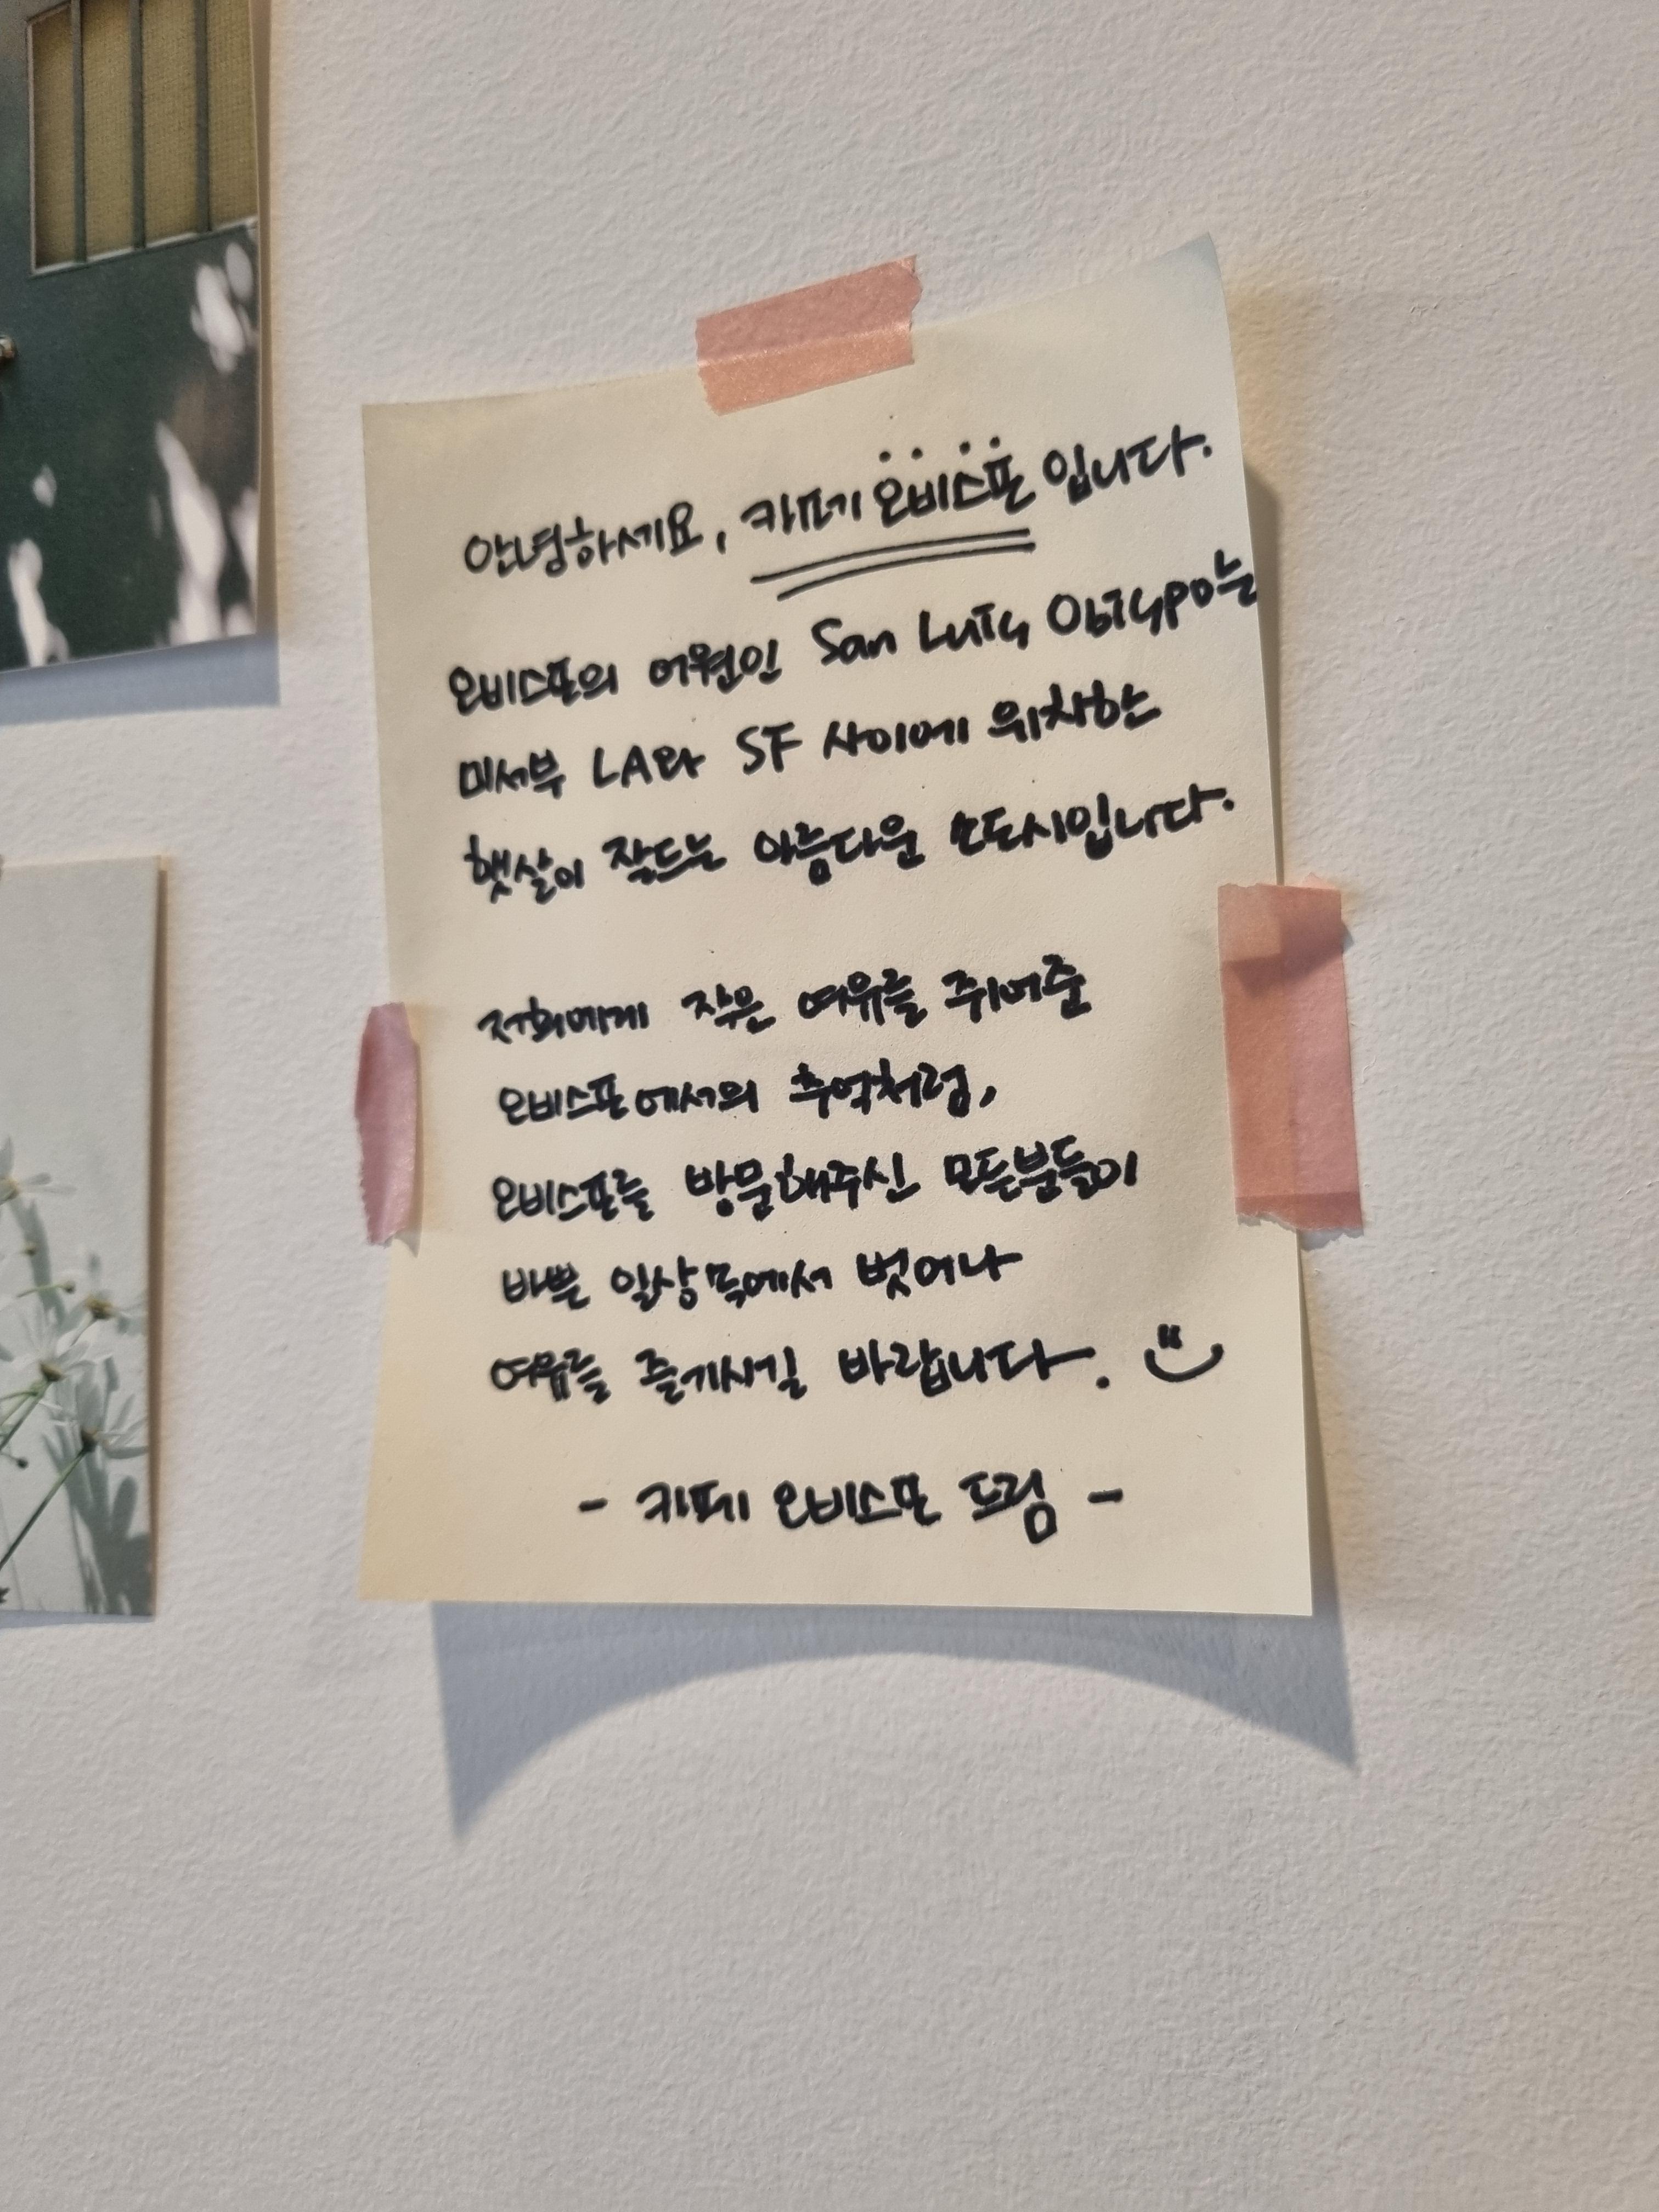 안녕하세요, 카페 오비스포 입니다.
오비스포의 어원인 San Luis Obispo는
미서부 LA와 SF 사이에 위치한
햇살이 잘드는 아름다운 소도시입니다.
저희에게 작은 여유를 쥐어준
오비스포에서의 추억처럼,
오비스포를 방문해주신 모든분들이
바쁜 일상 속에서 벗어나
여유를 즐기시길 바랍니다.
- 카페 오비스포 드림 -